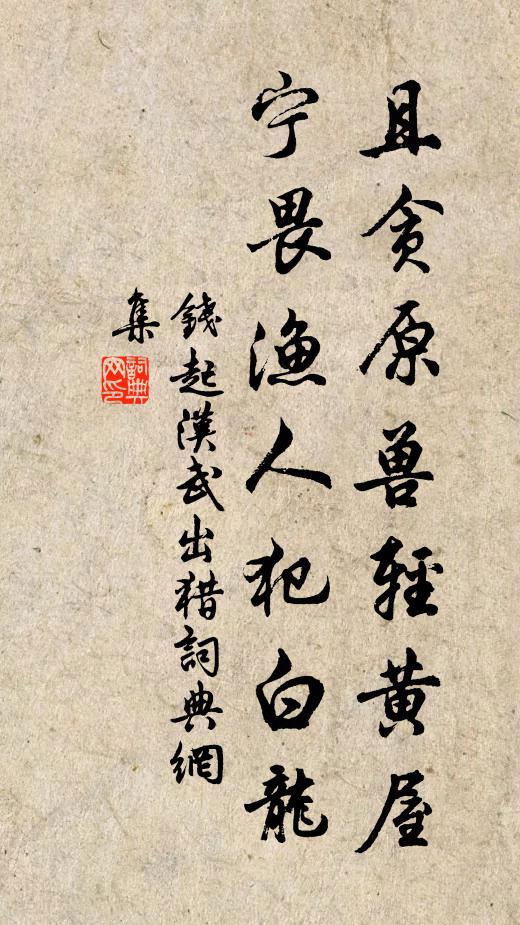 且贪原兽輕黄屋
宁畏漁人犯白龍
錢起漢武出猎詞典網
集
詞典网印